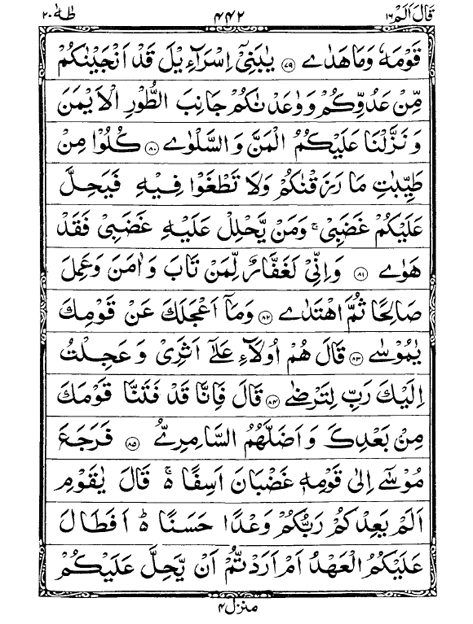 قَالَ اَلَمْ ١٦ ٤٤٢ طٰهٰ ٢٠
قَوْمَهٗ وَمَا هَدٰى ﴿٧٩﴾ يٰبَنِيْۤ اِسْرَآءِيْلَ قَدْ اَنْجَيْنٰكُمْ
مِّنْ عَدُوِّكُمْ وَوٰعَدْنٰكُمْ جَانِبَ الطُّوْرِ الْاَيْمَنَ
وَنَزَّلْنَا عَلَيْكُمُ الْمَنَّ وَالسَّلْوٰى ﴿٨٠﴾ كُلُوْا مِنْ
طَيِّبٰتِ مَا رَزَقْنٰكُمْ وَلَا تَطْغَوْا فِيْهِ فَيَحِلَّ
عَلَيْكُمْ غَضَبِيْ ۚ وَمَنْ يَّحْلِلْ عَلَيْهِ غَضَبِيْ فَقَدْ
هَوٰى ﴿٨١﴾ وَاِنِّيْ لَغَفَّارٌ لِّمَنْ تَابَ وَاٰمَنَ وَعَمِلَ
صَالِحًا ثُمَّ اهْتَدٰى ﴿٨٢﴾ وَمَاۤ اَعْجَلَكَ عَنْ قَوْمِكَ
يٰمُوْسٰى ﴿٨٣﴾ قَالَ هُمْ اُولَآءِ عَلٰٓى اَثَرِيْ وَعَجِلْتُ
اِلَيْكَ رَبِّ لِتَرْضٰى ﴿٨٤﴾ قَالَ فَاِنَّا قَدْ فَتَنَّا قَوْمَكَ
مِنْۢ بَعْدِكَ وَاَضَلَّهُمُ السَّامِرِيُّ ﴿٨٥﴾ فَرَجَعَ
مُوْسٰٓى اِلٰى قَوْمِهٖ غَضْبَانَ اَسِفًا ۚ قَالَ يٰقَوْمِ
اَلَمْ يَعِدْكُمْ رَبُّكُمْ وَعْدًا حَسَنًا ۗ اَفَطَالَ
عَلَيْكُمُ الْعَهْدُ اَمْ اَرَدْتُّمْ اَنْ يَّحِلَّ عَلَيْكُمْ
منزل ٤